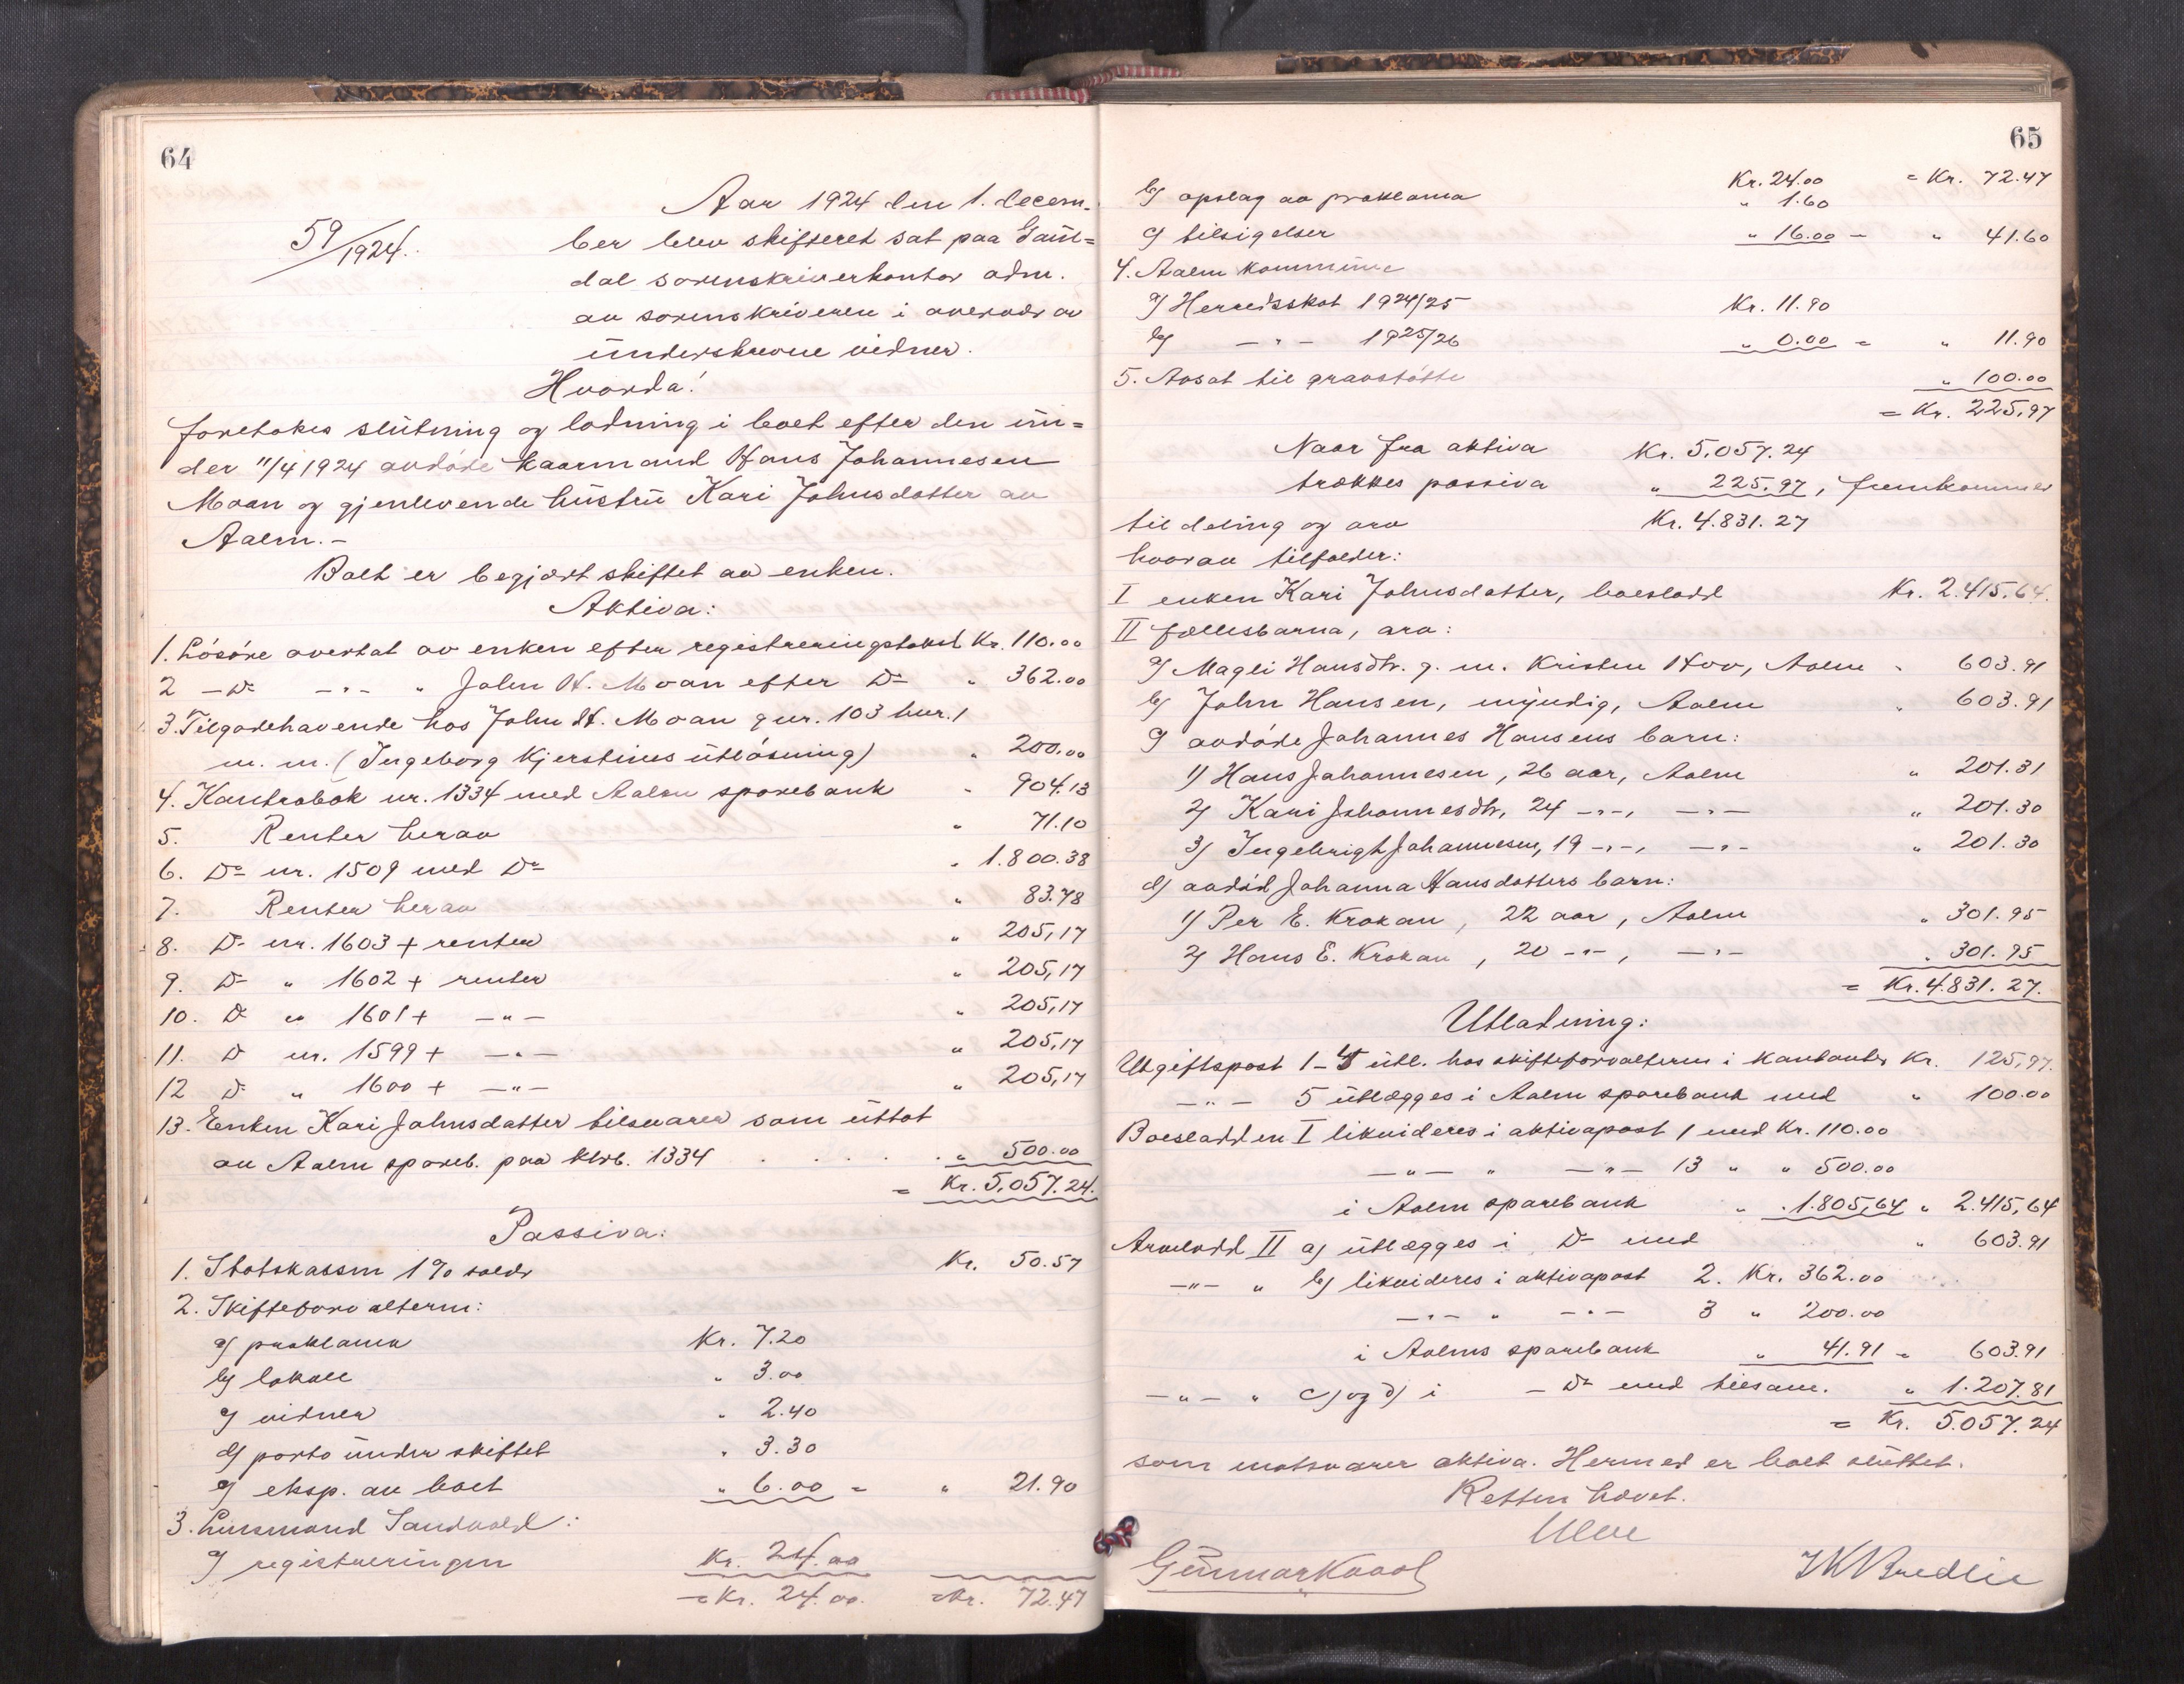 64
59/1924.
Aar 1924 den 1. decem-
ber blev skifteret sat paa Gaul=
dal sorenskriverkontor adm.
av sorenskriveren i overvær av
underskrevne vidner.
Hvorda!
foretokes slutning og lodning i boet efter den un=
der 11/4 1924 avdøde kaarmand Hans Johannesen
Moan og gjenlevende hustru Kari Johnsdatter av
Aalen.-
Boet er begjært skiftet av enken.
Aktiva:
1. Løsøre overtat av enken efter registreringstakst Kr. 110.00
2 -Do- -"- " John H. Moan efter Do " 362.00
3. Tilgodehavende hos John H. Moan gnr. 103 bnr. 1
m. m. (Ingeborg Kjerstines utløsning) " 200.00
4. Kontrabok nr. 1334 med Aalen sparebank " 904.13
5. Renter herav " 71.10
6. Do nr. 1509 med Do " 1.800.38
7. Renter herav " 83.78
8. Do nr. 1603 + renter " 205,17
9. Do " 1602 + renter " 205,17
10. Do " 1601 + -"- " 205,17
11. Do nr. 1599 + -"- " 205,17
12 Do " 1600 + -"- " 205,17
13. Enken Kari Johnsdatter tilsvarer som uttat
av Aalen spareb. paa ktrb. 1334 . . . . . " 500.00
= Kr. 5.057.24.
Passiva:
1. Statskassen 1% avgift Kr. 50.57
2. Skifteforvalteren:
a) proklama Kr. 7.20
b) lokale " 3.00
c) vidner " 2.40
d) porto under skiftet " 3.30
e) eksp. av boet " 6.00 = " 21.90
3. Lensmand Sandvold:
a) registreringen Kr. 24.00
= Kr. 24.00. = Kr. 72.47
65
Kr. 24.00 = Kr. 72.47
b) opslag av proklama " 1.60
c) tilsigelser " 16.00 = " 41.60
4. Aalen kommune
a) Herredsskat 1924/25 Kr. 11.90
b) -"- 1925/26 " 0.00 = " 11.90
5. Avsat til gravstøtte " 100.00
= Kr. 225,97
Naar fra aktiva Kr. 5.057.24
trækkes passiva " 225.97, fremkommer
til deling og arv Kr. 4.831.27
hvorav tilfalder:
I enken Kari Johnsdatter, boeslodd Kr. 2.415.64.
II fællesbarna, arv:
a) Magli Hansdtr. g. m. Kristen Hov, Aalen " 603.91
b) John Hansen, myndig, Aalen " 603.91
c) avdøde Johannes Hansens barn:
1) Hans Johannesen, 26 aar, Aalen " 201.31
2) Kari Johannesdtr, 24 -"-, -"- " 201.30
3) Ingebrigt Johannesen, 19 -"-, -"- " 201.30
d) avdød Johanna Hansdatters barn:
1) Per E. Krokan, 22 aar, Aalen " 301.95
2) Hans E. Krokan, 20 -"-, -"- " 301.95
= Kr. 4.831.27.
Utlodning:
Utgiftspost 1-4 utl. hos skifteforvalteren i kontanter Kr. 125,97.
-"- 5 utlægges i Aalen sparebank med " 100.00
Boeslodden I likvideres i aktivapost 1 med Kr. 110.00
-"- " -"- 13 " " 500.00
i Aalen sparebank " 1.805,64 " 2.415,64
Arvelodd II a) utlægges i Do med " 603.91
-"- " b) likvideres i aktivapost 2. Kr. 362.00
-"- " -"- 3 " 200.00
i Aalens sparebank " 41.91 = 603.91
-"- " c) og d) i -Do med tilsam. " 1.207.81
= Kr. 5.057.24
som motsvarer aktiva. Hermed er boet sluttet.
Retten hævet.
Gunnar Kvaal